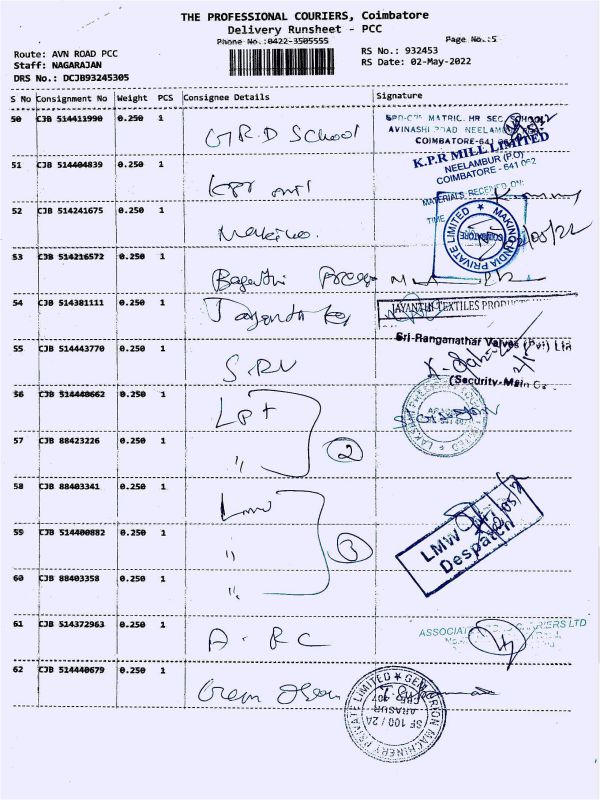 THE PROFESSIONAL COURIERS, Coimbatore
Delivery Runsheet - PCC
Phone No.:0422-3505555
Page No.:5
Route: AVN ROAD PCC
Staff: NAGARAJAN
DRS No.: DCJB93245305
RS No.: 932453
RS Date: 02-May-2022
S No Consignment No Weight PCS Consignee Details Signature
50 CJB 514411990 0.250 1 G.R.D School
MATRIC. HR SEC SCHOOL
AVINASHI ROAD NEELAM
COIMBATORE-641
51 CJB 514404839 0.250 1 KPR mill
K.P.R MILL LIMITED
NEELAMBUR (P.O)
COIMBATORE - 641 062
MATERIALS RECEIVED ON:
TIME
52 CJB 514241675 0.250 1
MAKING INDIA PRIVATE LIMITED
COIMBATORE
53 CJB 514216572 0.250 1
54 CJB 514381111 0.250 1
JAYANTHI TEXTILES PRODUCTS
55 CJB 514443770 0.250 1 S.RV
Sri Ranganathar Valves (Pvt) Ltd
(Security-Main
56 CJB 514440662 0.250 1 LPT
57 CJB 88423226 0.250 1 "
2
58 CJB 88403341 0.250 1 Lmw
LMW
Despatch
59 CJB 514400882 0.250 1 "
3
60 CJB 88403358 0.250 1 "
61 CJB 514372963 0.250 1 A. RC
ASSOCIATED ROAD CARRIERS LTD
62 CJB 514440679 0.250 1
GEM ORION MACHINERY PRIVATE LIMITED
SF 100 / 2A
ARASUR
CBE-407